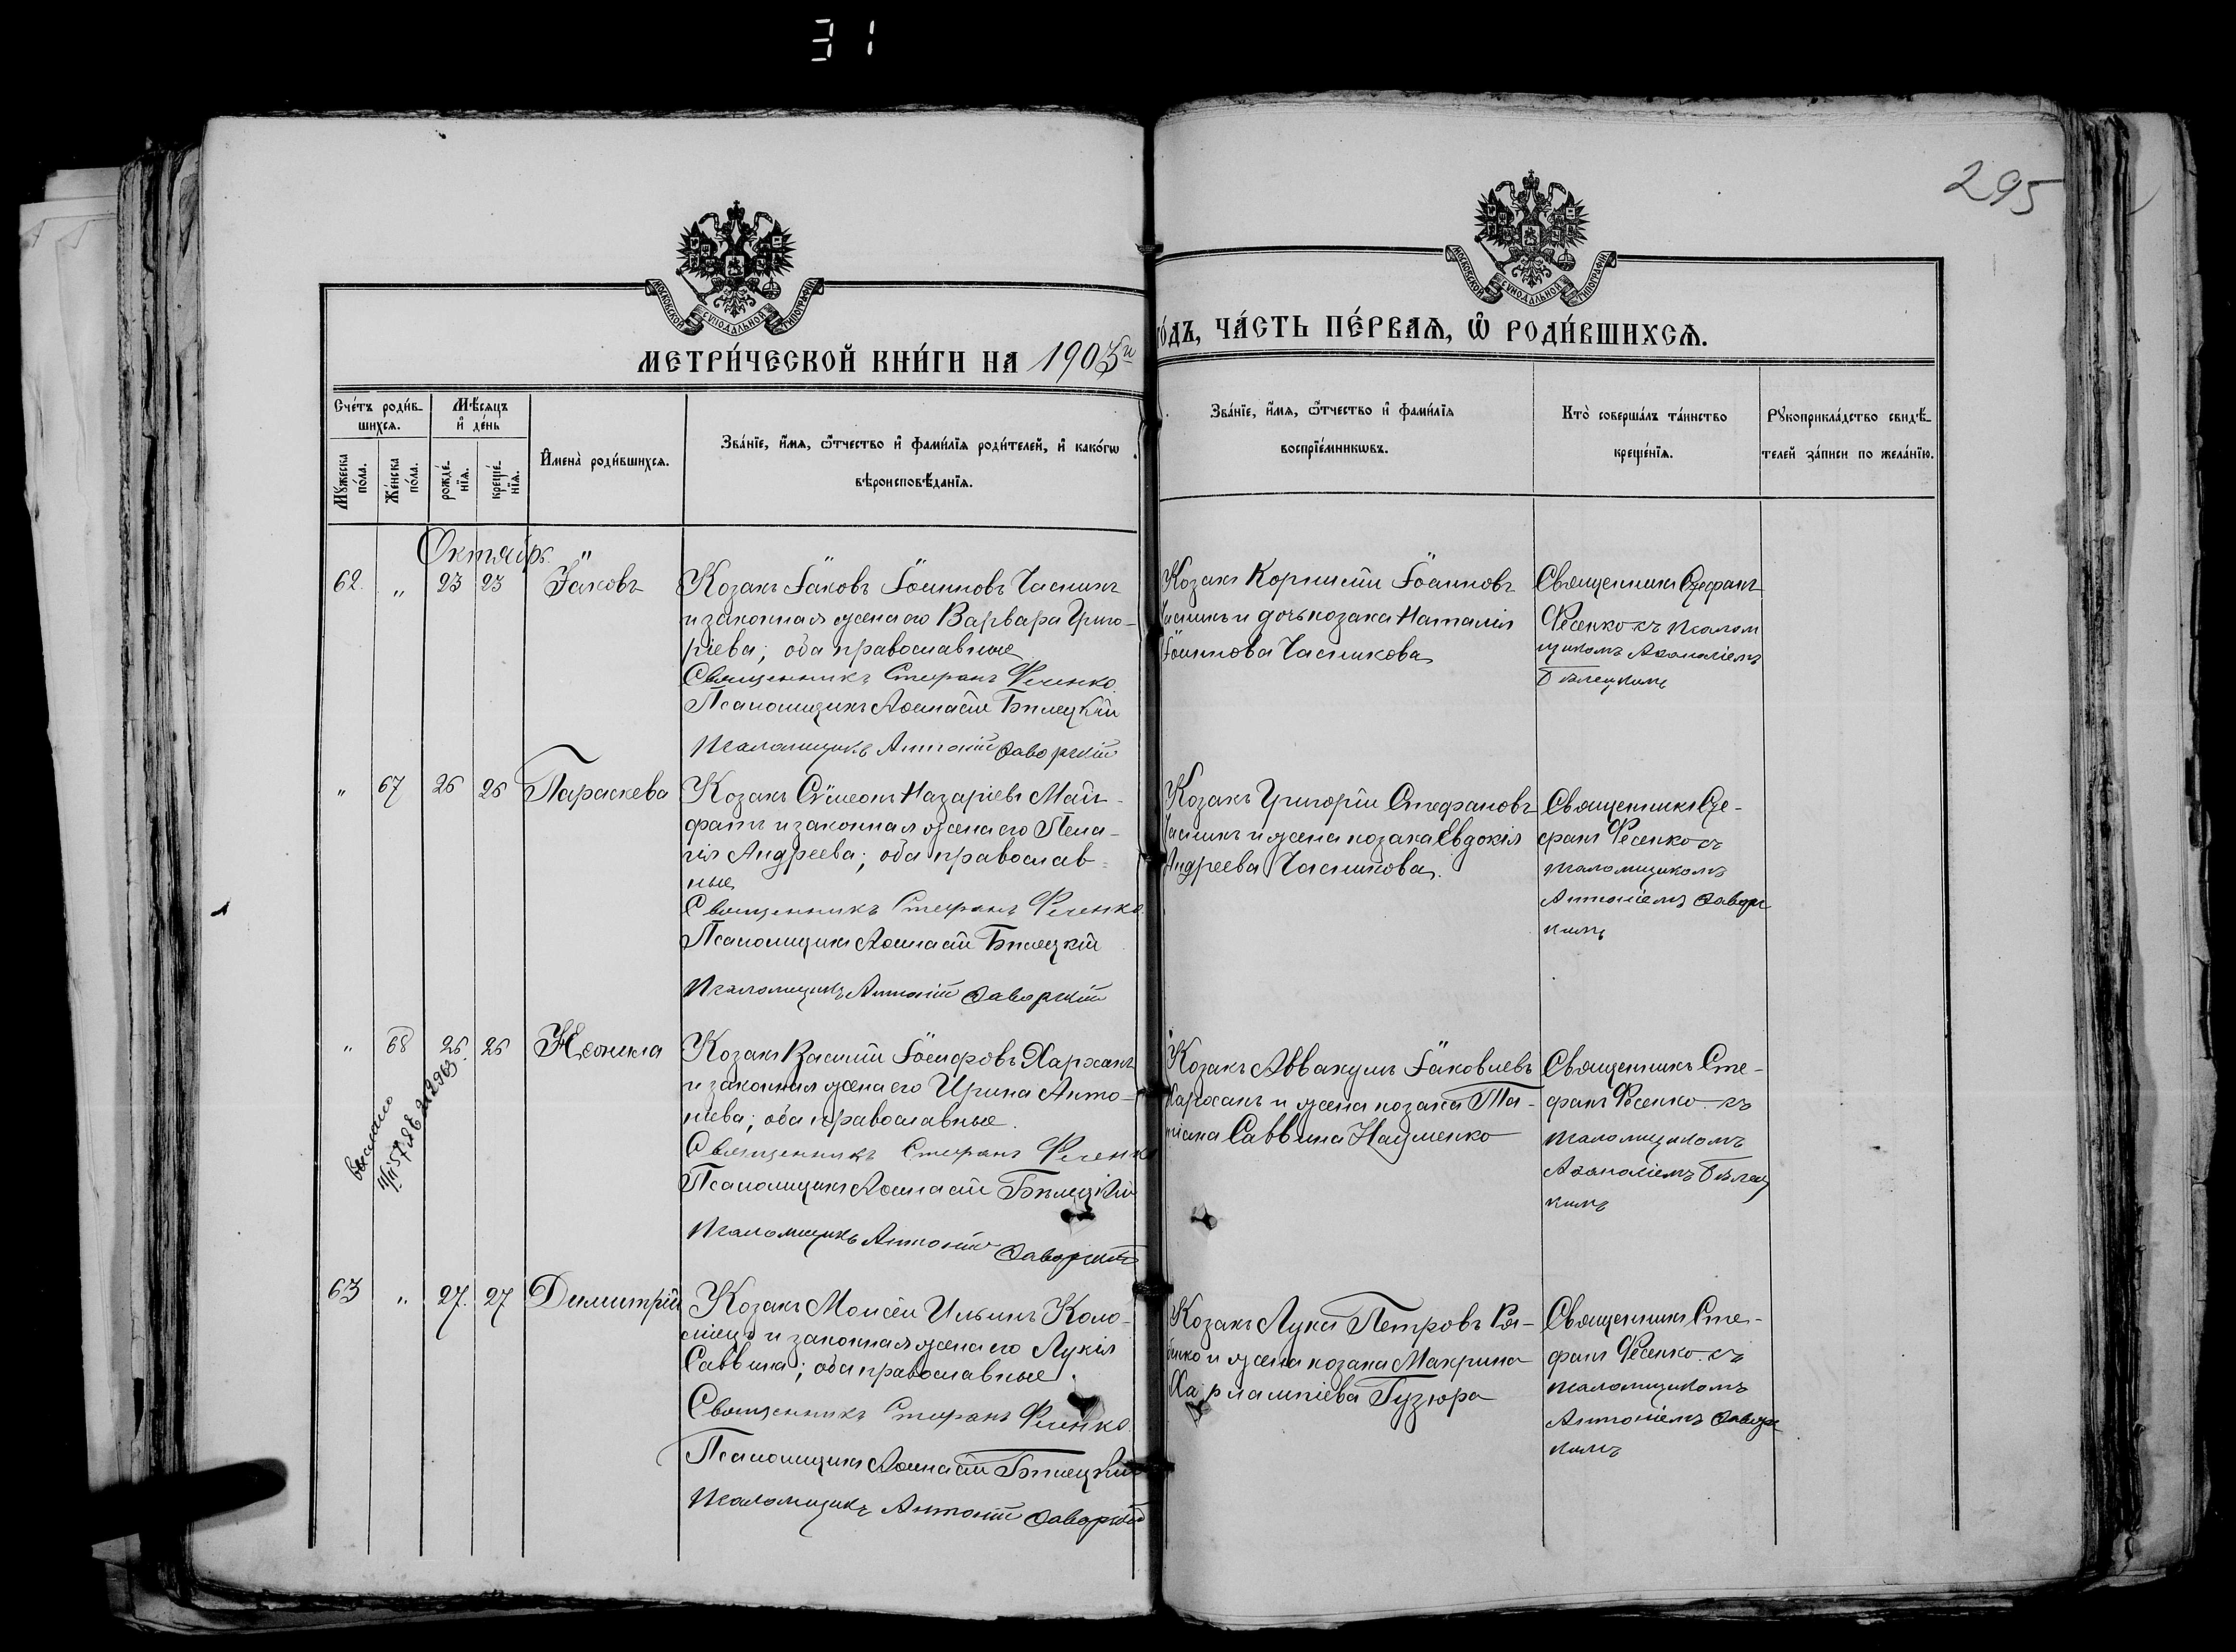 31
295
МОСКОВСКОЙ СУНОДАЛЬНОЙ ТИПОГРАФІИ
МОСКОВСКОЙ СУНОДАЛЬНОЙ ТИПОГРАФІИ
МЕТРИ́ЧЕСКОЙ КНИ́ГИ НА 1905й
ГО́ДЪ, ЧА́СТЬ ПЕ́РВАѦ, Ѽ РОДИ́ВШИХСѦ.
Сче́тъ роди́в-
шихся.
Мѣ́сяцъ
и҆ де́нь
Му́жеска
по́ла.
Же́нска
по́ла.
рожде́-
нїя.
креще́-
нїя.
И҆мена̀ роди́вшихся.
Зва́нїе, и҆́мя, ѻ҆́тчество и҆ фами́лїя роди́телей, и҆ како́гѡ
вѣроисповѣ́данїя.
Зва́нїе, и҆́мя, ѻ҆́тчество и҆ фами́лїя
воспрїе́мникѡвъ.
Кто̀ соверша́лъ та́инство
креще́нїя.
Рꙋкоприкла́дство свидѣ́-
телей за́писи по жела́нїю.
Октябрь.
62. " 23 23 Іаковъ
Козакъ Іаковъ Іоанновъ Часникъ
и законная жена его Варвара Григо-
ріева; оба православные
Священникъ Стефанъ Фесенко.
Псаломщикъ Аѳанасій Бѣлецкій
Псаломщикъ Антоній Заворскій
Козакъ Корнилій Іоанновъ
Часникъ и дочь козака Наталія
Іоаннова Часникова
Священникъ Стефанъ
Фесенко съ псалом
щикомъ Аѳанасіемъ
Бѣлецкимъ
" 67 26 26 Параскева
Козакъ Сѵмеонъ Назаріевъ Май-
фатъ и законная жена его Пела-
гія Андреева; оба православ-
ные
Священникъ Стефанъ Фесенко.
Псаломщикъ Аѳанасій Бѣлецкій
Псаломщикъ Антоній Заворскій
Козакъ Григорій Стефановъ
Часникъ и жена козака Евдокія
Андреева Часникова.
Священникъ Сте-
фанъ Фесенко съ
псаломщикомъ
Антоніемъ Заворс
кимъ
" 68 26. 26 Неонила
выслано
Козакъ Василій Іосифовъ Харханъ
и законная жена его Ирина Анто-
ніева; оба православные.
Священникъ Стефанъ Фесенко
Псаломщикъ Аѳанасій Бѣлецкій
Псаломщикъ Антоній Заворскій
Козакъ Аввакумъ Іаковлевъ
Харханъ и жена козака Та-
тіана Саввина Науменко
Священникъ Сте-
фанъ Фесенко съ
псаломщикомъ
Аѳанасіемъ Бѣлец
кимъ
63 " 27. 27 Димитрій
Козакъ Моисей Ильинъ Коло-
міецъ и законная жена его Лукія
Саввина; оба православные.
Священникъ Стефанъ Фесенко.
Псаломщикъ Аѳанасій Бѣлецкій
Псаломщикъ Антоній Заворскій
Козакъ Лука Петровъ Ря-
бенко и жена козака Макрина
Харлампіева Гузюра
Священникъ Сте-
фанъ Фесенко съ
псаломщикомъ
Антоніемъ Заворс
кимъ